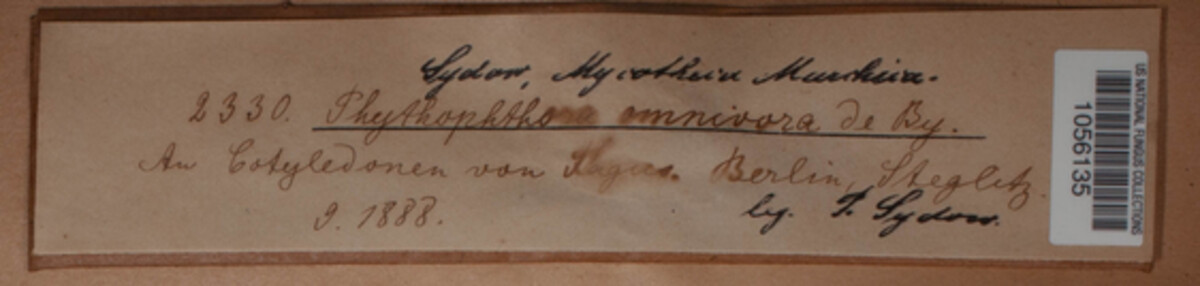 Sydow, Mycotheca Marchica.
2330. Phythophthora omnivora de By.
An Cotyledonen von Fagus. Berlin, Steglitz.
9. 1888.
leg. P. Sydow.
US NATIONAL FUNGUS COLLECTIONS
1056135